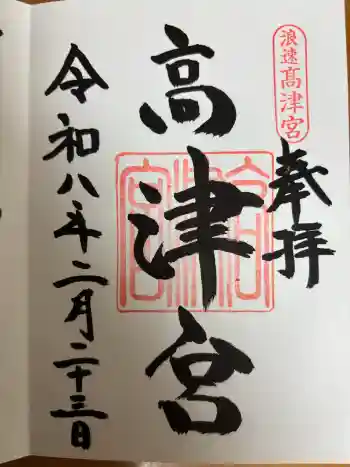 浪速高津宮
奉拝
高津宮
令和八年二月二十三日
高津宮